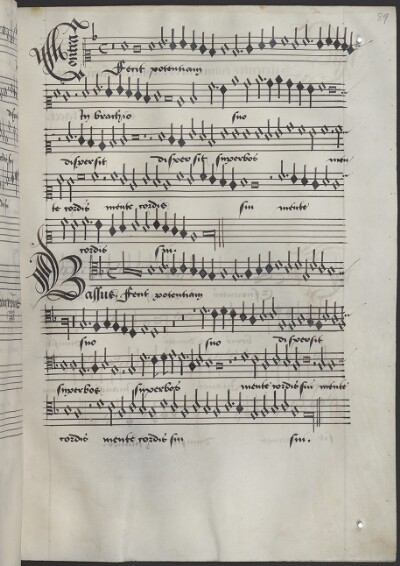 89
Contra
Fecit potentiam
In brachio suo
dispersit dispersit superbos men
te cordis mente cordis sui mente
cordis sui.
Bassus Fecit potentiam
suo suo dispersit
superbos superbos mente cordis sui mente
cordis mente cordis sui sui.